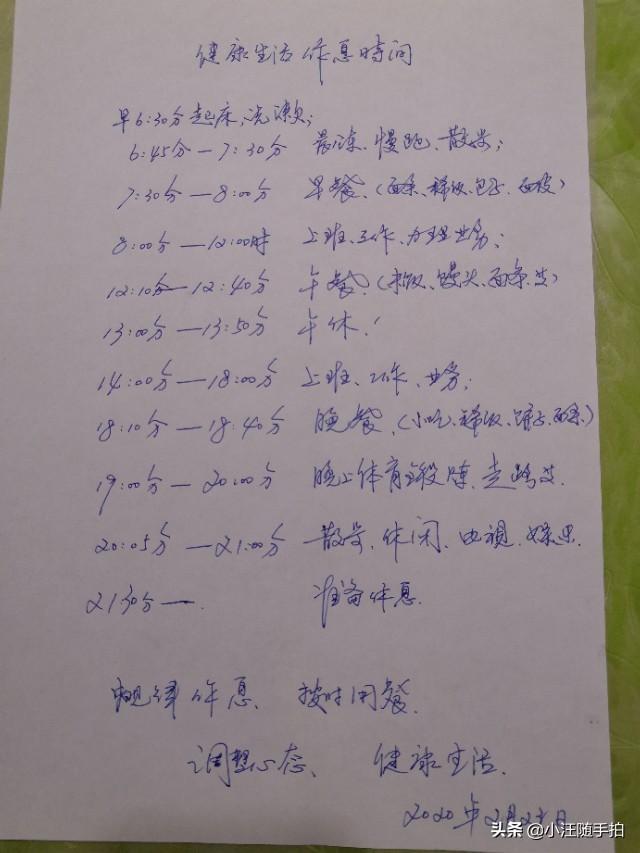 健康生活作息时间
早6:30分起床,洗漱;
6:45分—7:30分 晨练、慢跑、散步;
7:30分—8:00分 早餐、(面条、稀饭、包子、面皮)
8:00分—12:00时 上班、工作、办理业务;
12:10分—12:40分 午餐、(米饭、馒头、面条、类)
13:00分—13:50分 午休!
14:00分—18:00分 上班、工作、业务;
18:10分—18:40分 晚餐、(小吃、稀饭、饼子、面条)
19:00分—20:00分 晚上体育锻炼、走路类.
20:05分—21:00分 散步、休闲、电视、娱乐.
2130分—. 准备休息.
规律作息、按时用餐.
调整心态、健康生活.
2020年2月 日
头条@小汪随手拍